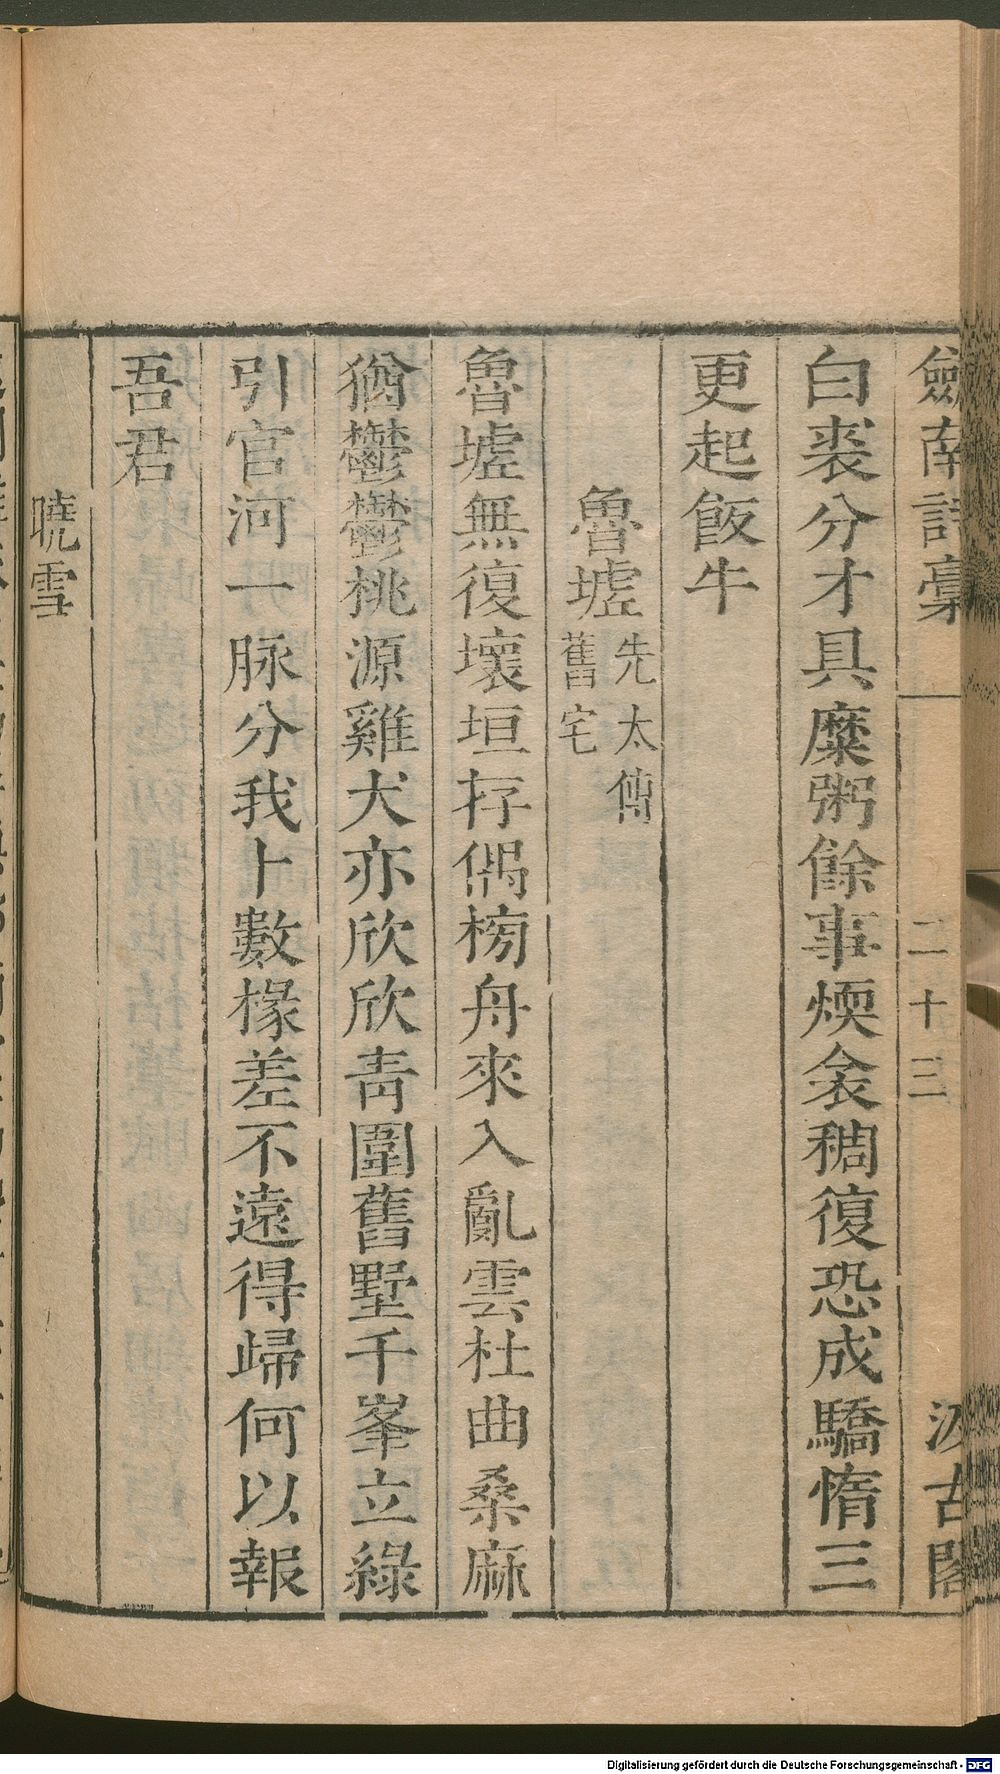 劍南詩稾 二十三 汲古閣
白裘分才具糜粥餘事煗衾稠復恐成驕惰三
更起飯牛
魯墟 先太傅
舊宅
魯墟無復壞垣存偶榜舟來入亂雲杜曲桑麻
猶鬱鬱桃源雞犬亦欣欣靑圍舊墅千峯立綠
引官河一脉分我卜數椽差不遠得歸何以報
吾君
曉雪
Digitalisierung gefördert durch die Deutsche Forschungsgemeinschaft - DFG